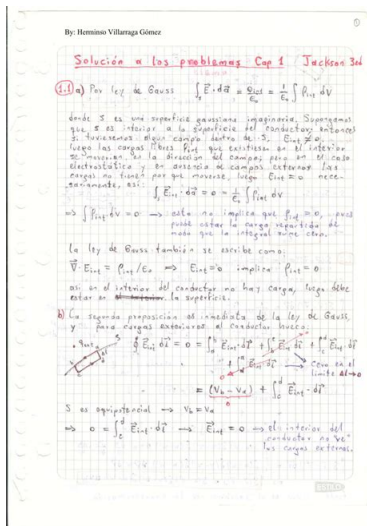 ①
By: Herminso Villarraga Gómez
Solución a los problemas Cap 1 Jackson 3ed
1.1 a) Por ley de Gauss ∮ₛ E⃗·da⃗ = Qint/ε₀ = 1/ε₀ ∫ρint dV
donde S es una superficie gaussiana imaginaria. Supongamos
que S es interior a la superficie del conductor, entonces
si tuvieramos algun campo dentro de S, Eint ≠ 0,
luego las cargas libres ρint que existiesen en el interior
se moverían en la dirección del campo; pero en el caso
electrostático y en ausencia de campos externos las
cargas no tienen por que moverse, luego Eint = 0 nece-
sariamente, así:
∫ₛ E⃗int·da⃗ = 0 = 1/ε₀ ∫ρint dV
⇒ ∫ρint dV = 0 → esto no implica que ρint = 0, pues
puede estar la carga repartida de
modo que la integral sume cero.
la ley de Gauss también se escribe como
∇⃗·E⃗int = ρint/ε₀ ⇒ Eint = 0 implica ρint = 0
así en el interior del conductor no hay carga, luego debe
estar en la superficie.
b) La segunda proposición es inmediata de la ley de Gauss,
y para cargas exteriores al conductor hueco:
∮ E⃗int·dl⃗ = 0 = ∫ E⃗int·dl⃗ + ∫ E⃗in·dl⃗ + ∫ E⃗int·dl⃗
+ ∫ E⃗int·dl⃗ → cero en el
límite Δl→0
= (Vb − Va) + ∫ E⃗int·dl⃗
0
S es equipotencial → Vb = Va
⇒ 0 = ∫ E⃗int·dl⃗ → E⃗int = 0 ⇒ el interior del
conductor no "ve"
las cargas externas.